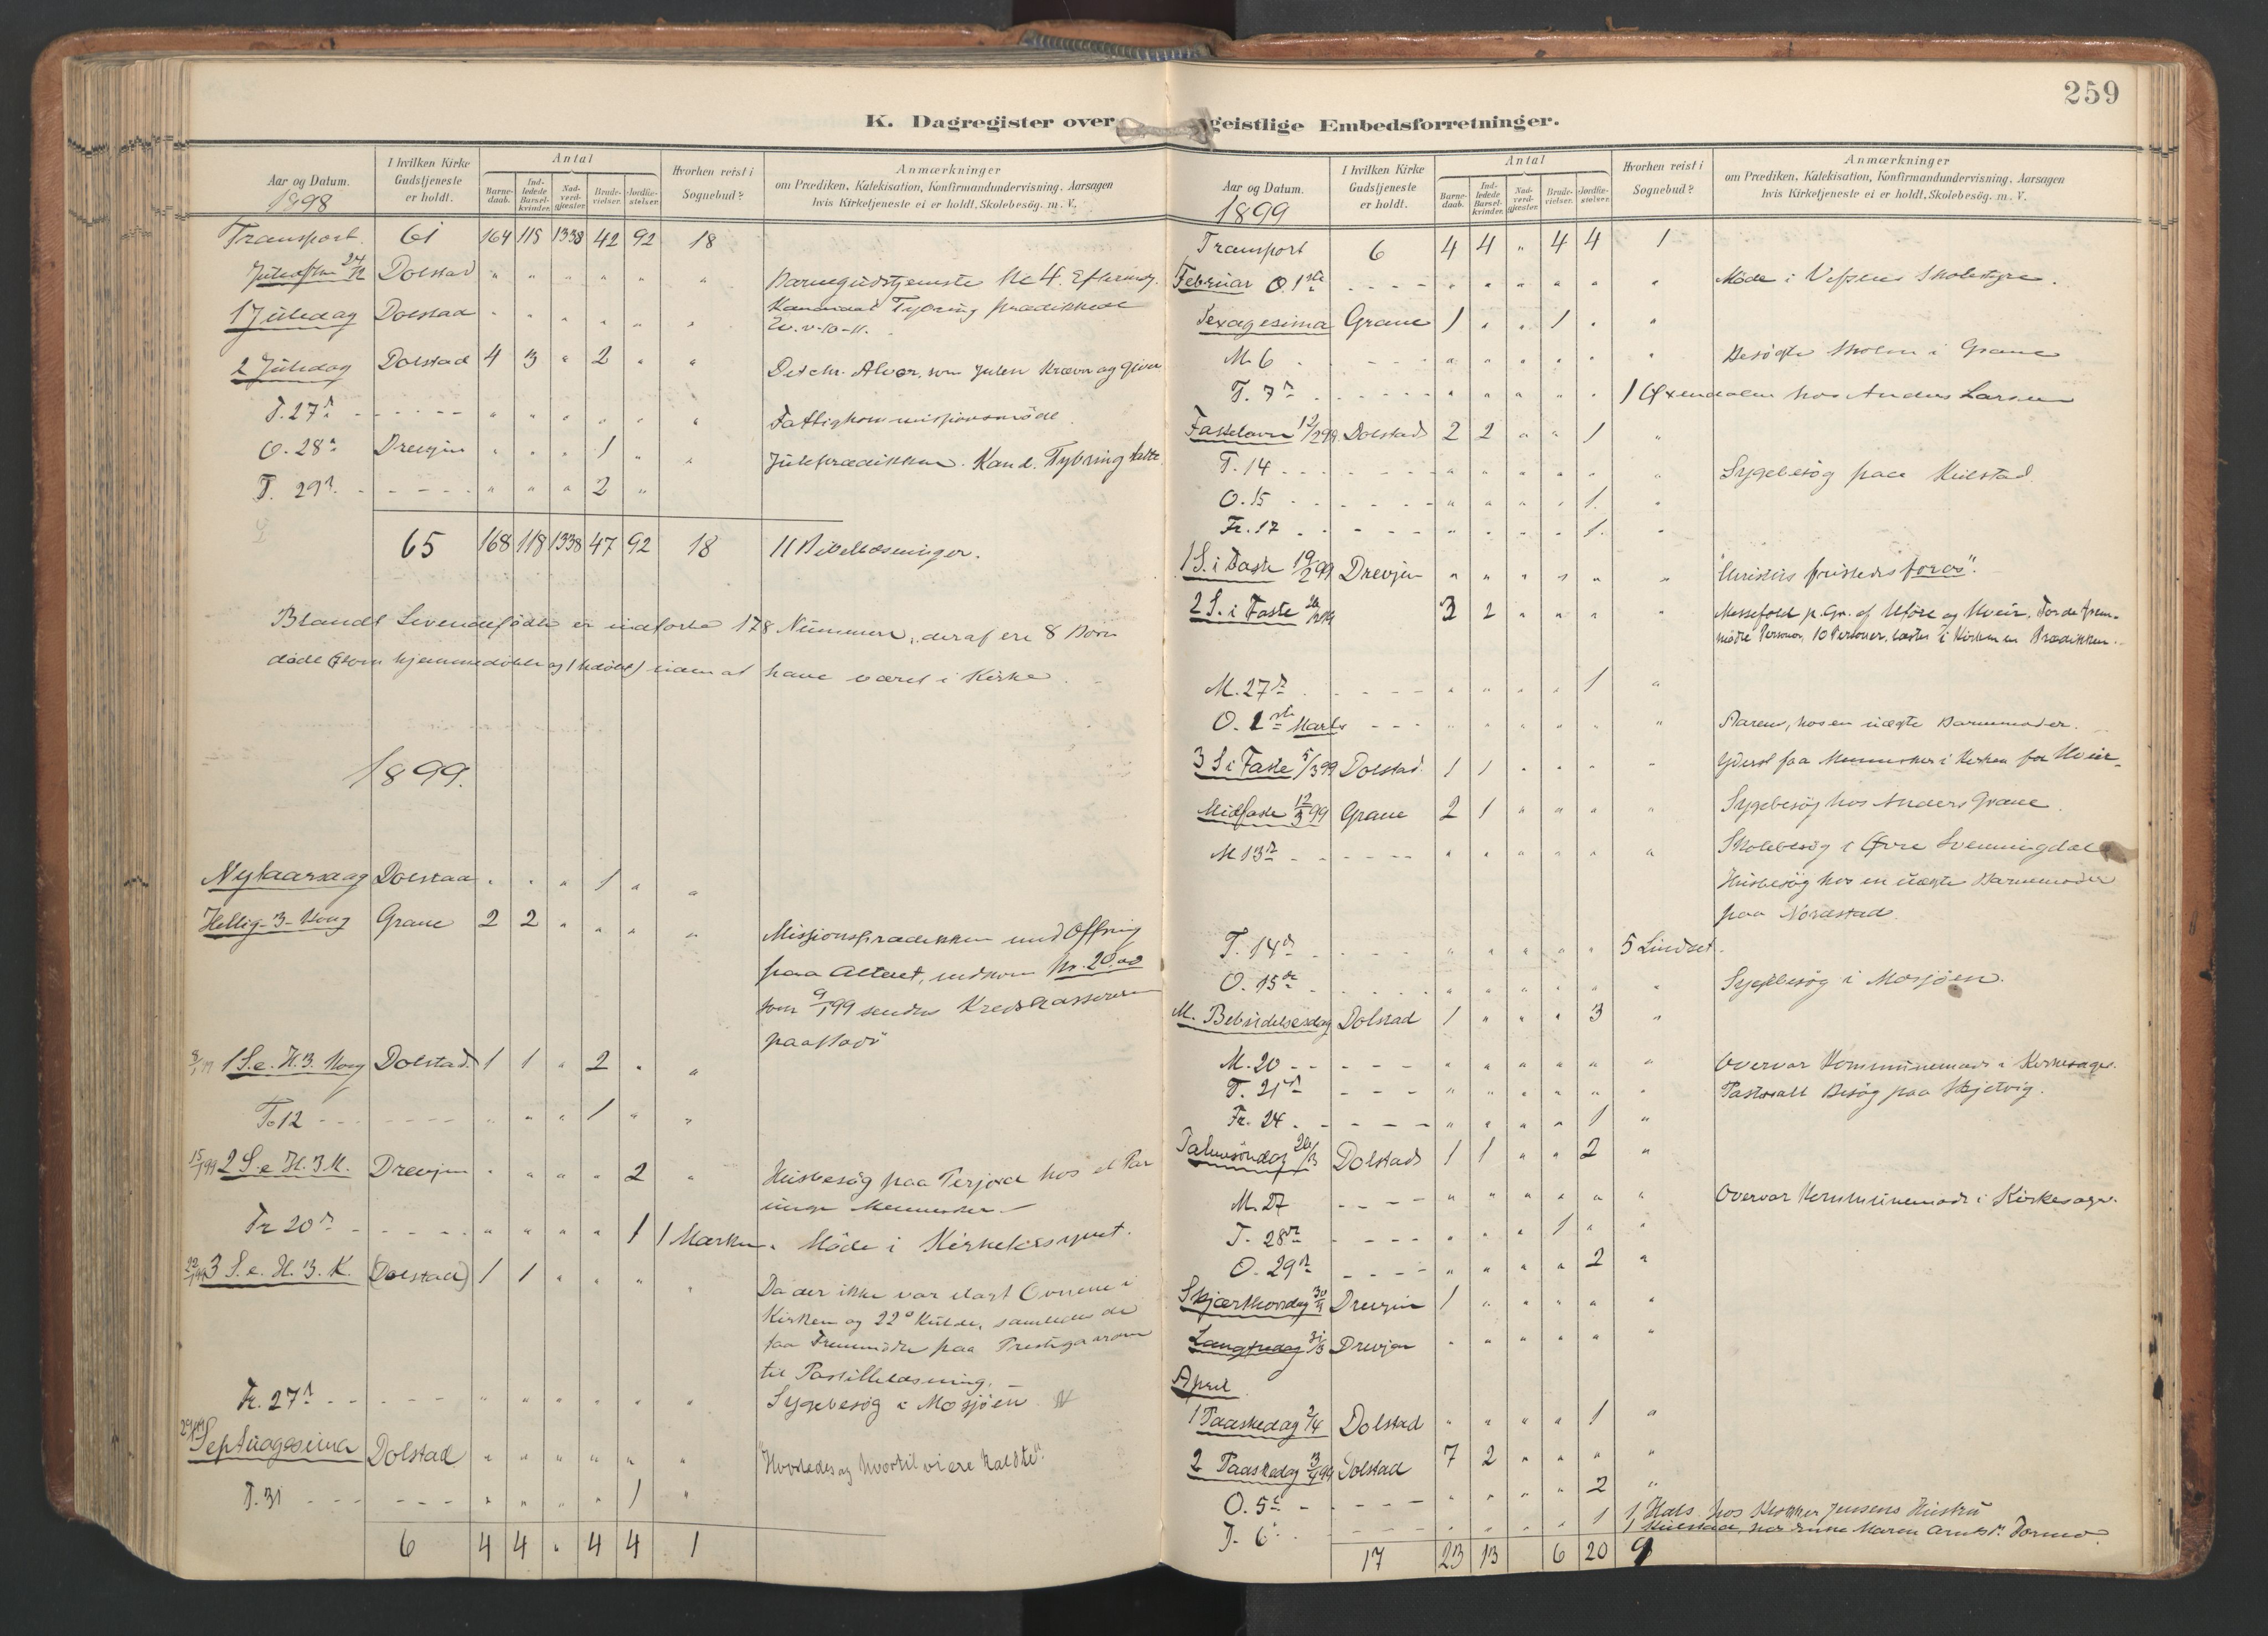 259
K. Dagregister over geistlige Embedsforretninger.
Aar og Datum. | I hvilken Kirke Gudstjeneste er holdt. | Antal | Barnedaab. | Indledede Barselkvinder. | Nadverdgjæster. | Brudevielser. | Jordfæstelser. | Hvorhen reist i Sognebud? | Anmærkninger om Prædiken, Katekisation, Konfirmandundervisning. Aarsagen hvis Kirketjeneste ei er holdt. Skolebesög. m. V.
1898
Transport 61 164 115 1338 42 92 18
Juleaften 24/12 Dolstad " " " " " " Barnegudstjeneste Kl 4. Efterm.
1 Juledag Dolstad " " " " " " Kandidat Tybring prædikede
Ev. v. 10-11.
2 Juledag Dolstad 4 3 " 2 " " Det chr. Alvor, som Julen kræver og giver
T. 27d - - - - - " " " " " " Fattigkommissionsmöde
O. 28d Drevjen " " " 1 " " Juleprædikken. Kand. Tybring talte.
T. 29d - - - - - " " " 2 "
65 168 118 1338 47 92 18 11 Bibellæsninger.
Blandt Levendefödte er indförte 178 Nummere, deraf ere 8 Börn
döde (7 som hjemmedöbte og 1 udöbt) uden at have været i Kirke.
1899.
Nytaarsdag Dolstad " " " 1 " "
Hellig-3-Kong Grane 2 2 " " " " Missionsprædikken med Offring
paa Alteret, indkom Kr. 20.00
som 9/1 99 sendes Kredskassereren
1 S. e. H. 3. Kong Dolstad. 1 1 " 2 " "
To 12 - - - - - " " " 1 " "
15/1 99 2 S. e. H. 3 K. Drevjen " " " " 2 " Husbesög paa Terjord hos et Par
unge Mennesker -
Fr 20d - - - - - " " " " 1 1 Marken. Möde i Kirketilsynet.
22/1 99 3 S. e. H. 3. K. (Dolstad) 1 1 " " " " Da der ikke var lagt i Ovnene i
Kirken og 22° Kulde, samledes de
faa Fremmödte paa Prestegaarden
til Postillelæsning. -
Fr. 27d - - - - - " " " " " " Sygebesög i Mosjöen
29/1 99 Septuagesima Dolstad " " " " " " "Hvorledes og hvortil vi ere kaldte".
T. 31 - - - - - " " " " 1 "
6 4 4 " 4 4 1
Aar og Datum. | I hvilken Kirke Gudstjeneste er holdt. | Antal | Barnedaab. | Indledede Barselkvinder. | Nadverdgjæster. | Brudevielser. | Jordfæstelser. | Hvorhen reist i Sognebud? | Anmærkninger om Prædiken, Katekisation, Konfirmandundervisning. Aarsagen hvis Kirketjeneste ei er holdt, Skolebesög. m. V.
1899
Transport 6 4 4 " 4 4 1
Februar O. 1ste - - - - " " " " " " Möde i Vefsens Skolestyre.
Sexagesima Grane 1 " " 1 " "
M. 6 - - - - " " " " " " Besögte Skolen i Grane
T. 7d - - - - " " " " " 1 Öxendalen hos Anders Larsen
Fastelavn 12/2 99 Dolstad 2 2 " " 1 "
T. 14 - - - - " " " " " " Sygebesög paa Kulstad.
O. 15 - - - - " " " " 1. "
Fr. 17 - - - - " " " " 1. "
1 S. i Faste 19/2 99 Drevjen " " " " " "
2 S. i Faste 26/2 99 3 2 " " " " Messefald p. Gr. af Uföre og Uveir. For de frem-
mödte Personer, 10 Personer, læstes i Kirken en Prædikken.
M. 27d - - - - " " " " 1 "
O. 1ste Marts - - - " " " " " " hos en uægte Barnemoder.
3 S. i Faste 5/3 99 Dolstad. 1 1 " " " " Yderst faa Mennesker i Kirken for Uveir.
Midfaste 12/3 99 Grane 2 1 " " " " Sygebesög hos Anders Grane.
M 13d - - - - " " " " " " Skolebesög i Övre Svenningdal
Husbesög hos en uægte Barnemoder
paa
T. 14d - - - - " " " " " 5 Lindset.
O. 15de - - - - " " " " " " Sygebesög i Mosjöen.
M. Bebudelsesdag Dolstad 1 " " " 3 "
M. 20 - - - - " " " " " " Overvar Kommunemöde i Kirkesager.
T. 21d - - - " " " " " " Pastoralt Besög paa Skjetvig.
Fr. 24 - - - - " " " " 1 "
Palmesöndag 26/3 Dolstad 1 1 " " 2 "
M. 27 - - - " " " " " " Overvar Kommunemöde i Kirkesager.
T. 28d - - - - " " " 1 " "
O. 29d - - - - " " " " 2 "
Skjærthorsdag 30/3 Drevjen 1 " " " " "
Langfredag 31/3 Drevjen " " " " " "
April
1 Paaskedag 2/4 Dolstad " " " " 1 "
2 Paaskedag 3/4 99 Dolstad 7 2 " " " "
O. 5te - - - - " " " " 2 "
T. 6te - - - - " " " " 1 1 Hals hos Klokker Jensens Hustru
1 Kulstad, hos Enke Maren Dormo.
17 23 13 6 20 9